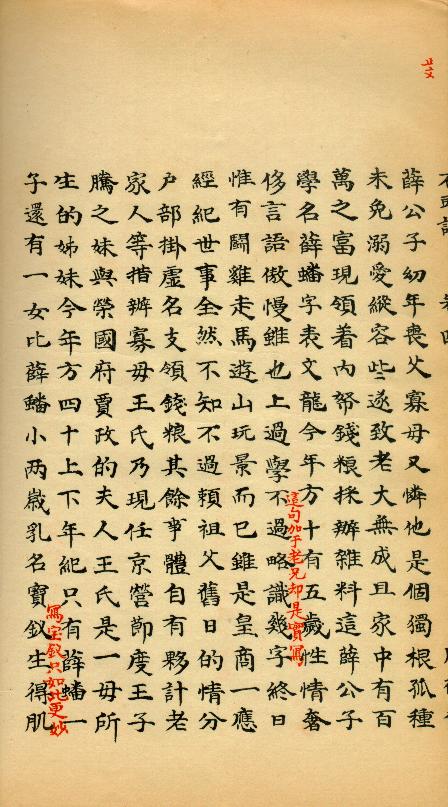 薛公子幼年喪父寡母又憐他是個獨根孤種
未免溺愛縱容些遂致老大無成且家中有百
萬之富現領着內帑錢粮採辦雜料這薛公子
學名薛蟠字表文龍今年方十有五歲性情奢
侈言語傲慢雖也上過學不過略識幾字終日
這句加于老兄却是實寫
惟有鬪雞走馬遊山玩景而已雖是皇商一應
經紀世事全然不知不過賴祖父舊日的情分
户部掛虛名支領錢粮其餘事體自有夥計老
家人等措辦寡母王氏乃現任京營節度王子
騰之妹與榮國府賈政的夫人王氏是一母所
生的姊妹今年方四十上下年紀只有薛蟠一
子還有一女比薛蟠小两歲乳名寶釵生得肌
寫宝釵只如此更妙